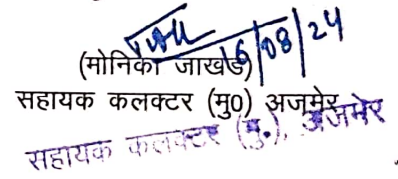 16/08/24
(मोनिका जाखड)
सहायक कलक्टर (मु0) अजमेर
सहायक कलक्टर (मु.), अजमेर